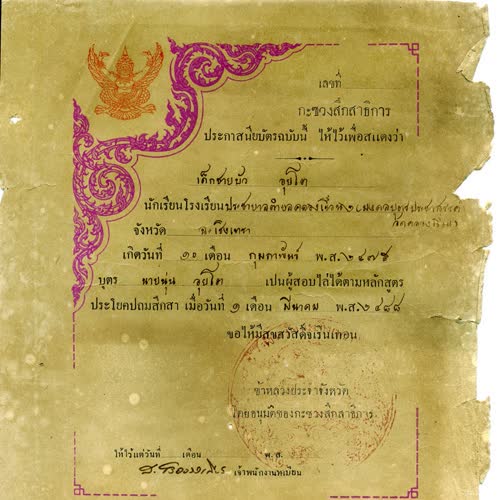 เลขที่
กะซวงสึกสาธิการ
ประกาสนียบัตรฉบับนี้ ให้ไว้เพื่อสแดงว่า
เด็กชายบัว
นักเรียนโรงเรียนประชาบาลตำบลคลอง
จังหวัด ฉะเชิงเทรา
เกิดวันที่ ๑๐ เดือน กุมภาพันธ์ พ.ส. ๒๔๗๕
บุตร นายนุ่น เป็นผู้สอบไล่ได้ตามหลักสูตร
ประโยคปถมสึกสา เมื่อวันที่ ๑ เดือน มีนาคม พ.ส. ๒๔๘๘
ขอไห้มีสุขสวัสดิ์จเรินเทอน
ข้าหลวงประจำจังหวัด
โดยอนุมัติของกะซวงสึกสาธิการ
ไห้ไว้แต่วันที่ เดือน พ.ส.
เจ้าพนักงานทเบียน